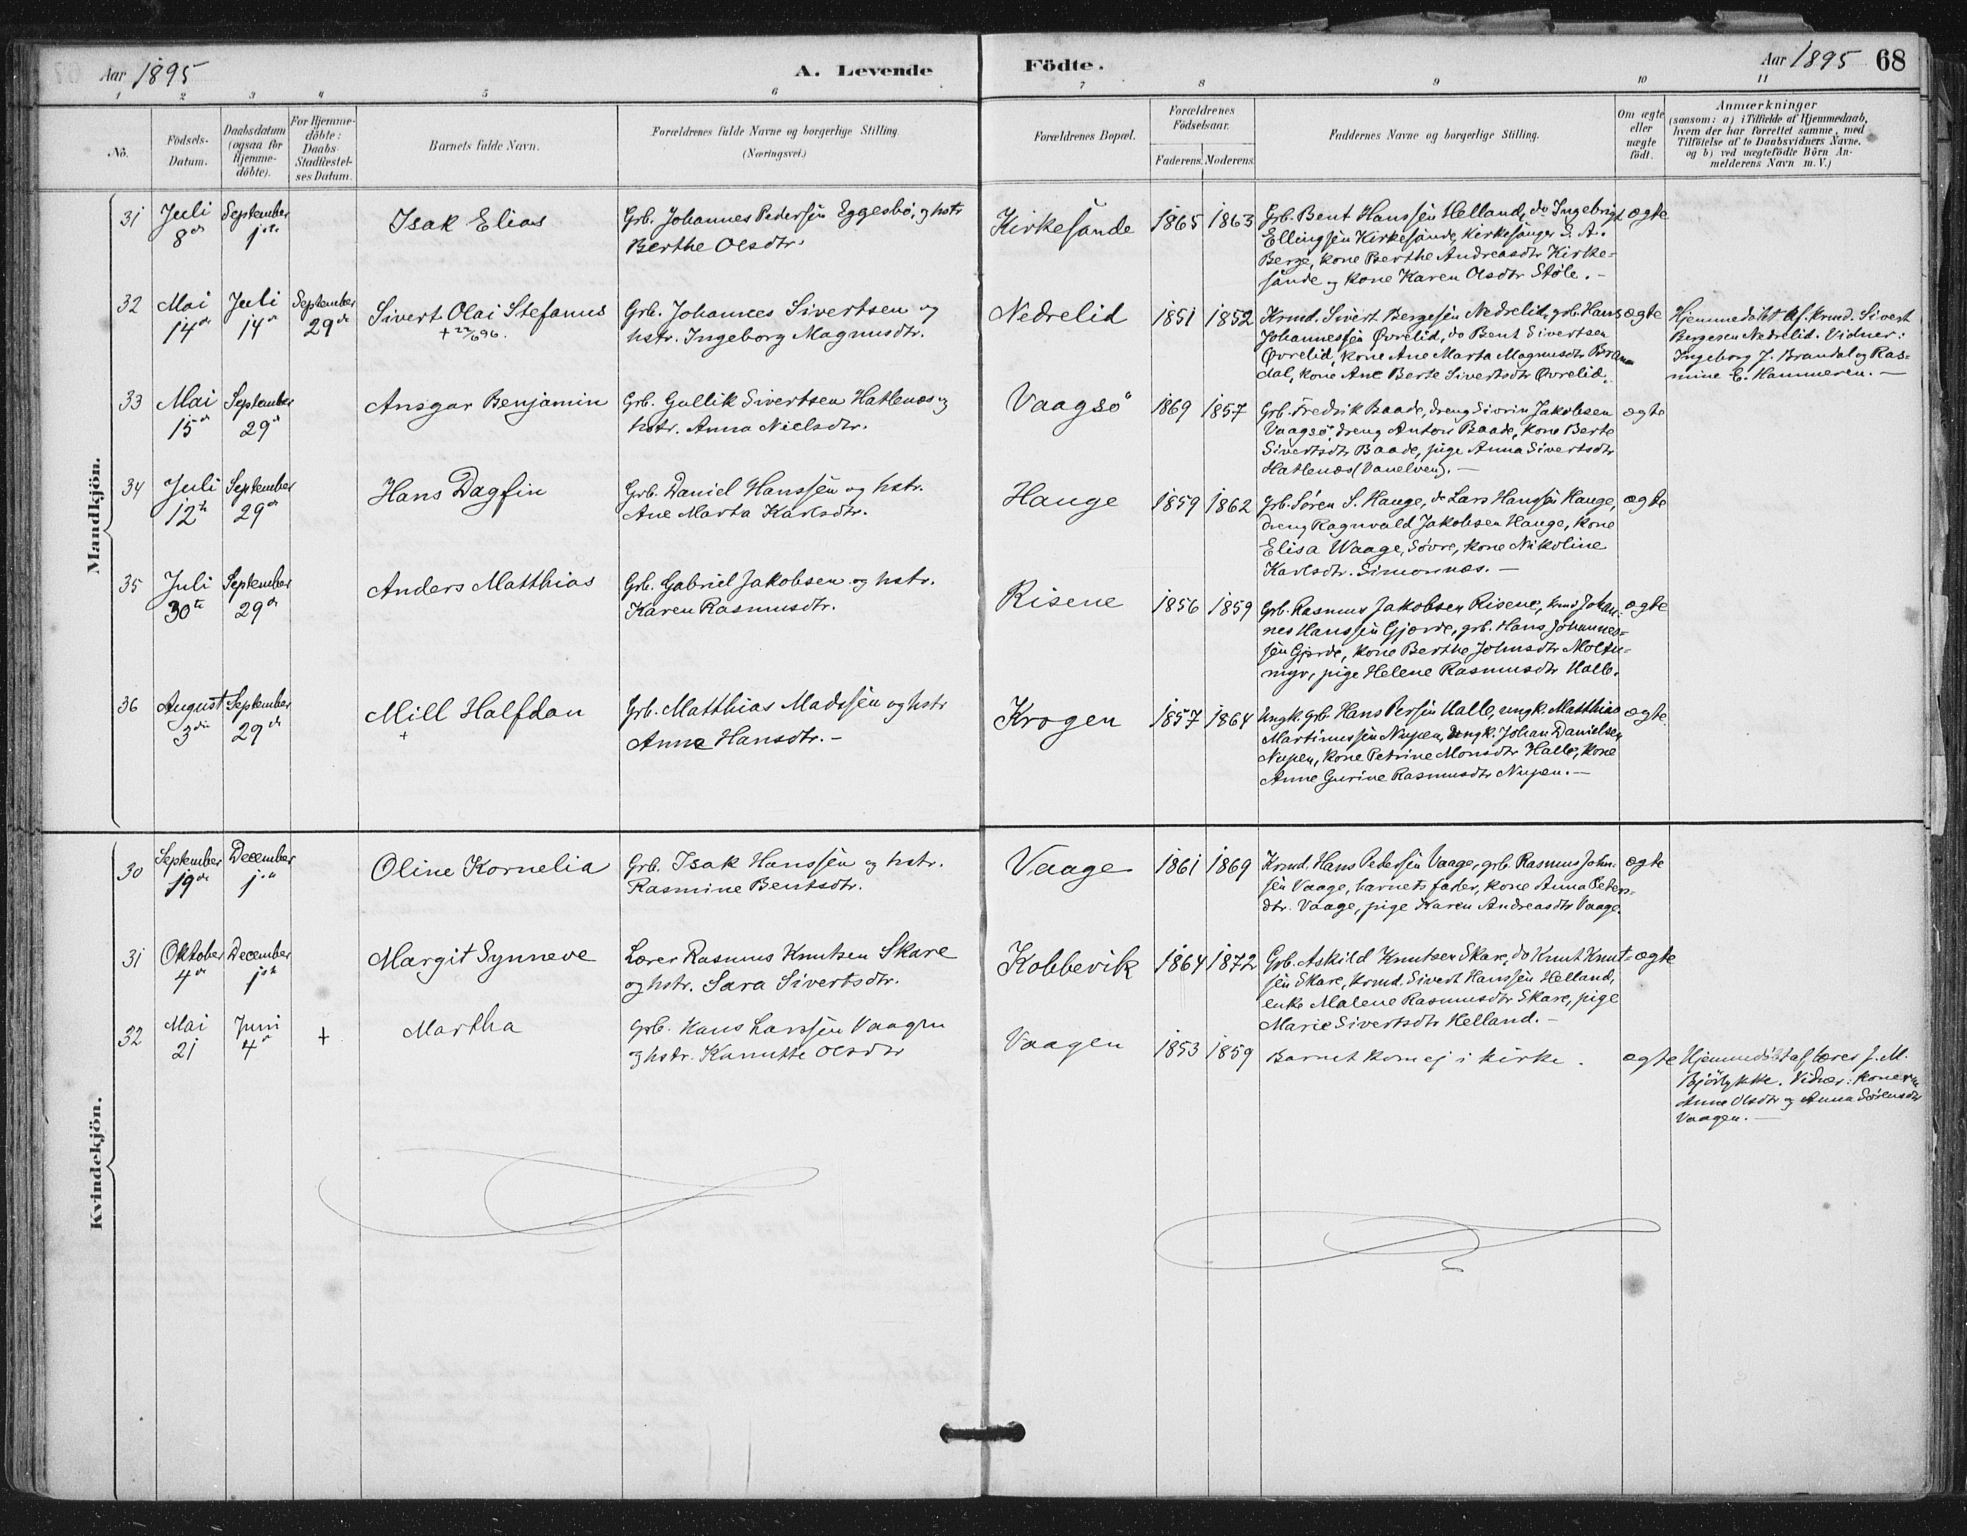 Aar 1895
A. Levende
Födte.
Aar 1895 68
1 2 3 4 5 6 7 8 9 10 11
No.
Födsels-
Datum.
Daabsdatum
(ogsaa for
Hjemme-
döbte).
For Hjemme-
döbte:
Daabs-
Stadfæstel-
ses Datum.
Barnets fulde Navn.
Forældrenes fulde Navne og borgerlige Stilling
(Næringsvei.)
Forældrenes Bopæl.
Forældrenes
Födselsaar.
Faderens. Moderens.
Faddernes Navne og borgerlige Stilling.
Om ægte
eller
uægte
födt.
Anmærkninger
(saasom: a) i Tilfælde af Hjemmedaab,
hvem der har forrettet samme, med
Tilföielse af to Daabsvidners Navne,
og b) ved uægtefödte Börn An-
melderens Navn m. V.)
Mandkjön.
31 Juli September Isak Elias Grb. Johannes Pedersen Eggesbö, og hstr
8de 1ste Berthe Olsdtr.
Kirkesande 1865 1863 Grb. Bent Hanssen Helland, do Ingebrigt ægte
Ellingsen Kirkesande, Kirkesanger E. A.
Berge, kone Berthe Andreasdtr Kirke-
sande og kone Karen Olsdtr Støle. -
32 Mai Juli September Sivert Olai Stefanus Grb. Johannes Sivertsen og
14de 14de 29de + 22/6 96. hstr. Ingeborg Magnusdtr.
Nedrelid 1851 1852 Krmd. Sivert Bergesen Nedrelid, grb. Hans ægte Hjemmedöbt af krmd. Sivert
Johannessen Øvrelid, do Bent Sivertsen Bergesen Nedrelid. Vidner:
Øvrelid, kone Ane Marta Magnusdtr Bran- Ingeborg J. Brandal og Ras-
dal, kone Ane Berte Sivertsdtr Øvrelid. mine E. Hammeren. -
33 Mai September Ansgar Benjamin Grb. Gullik Sivertsen Hatlenæs og
15de 29de hstr. Anna Nielsdtr.
Vaagsö 1869 1857 Grb. Fredrik Baade, dreng Sivrin Jakobsen ægte
Vaagsö, dreng Anton Baade, kone Berte
Sivertsdtr Baade, pige Anna Sivertsdtr
Hatlenæs (Vanelven). -
34 Juli September Hans Dagfin Grb. Daniel Hanssen og hstr.
12te 29de Ane Marta Karlsdtr.
Hauge 1859 1862 Grb. Søren S. Hauge, do Lars Hanssen Hauge, ægte
dreng Ragnvald Jakobsen Hauge, kone
Elisa Waage, Søvre, kone Nikoline
Karlsdtr. Simonnæs. -
35 Juli September Anders Matthias Grb. Gabriel Jakobsen og hstr.
30te 29de Karen Rasmusdtr.
Risene 1856 1859 Grb. Rasmus Jakobsen Risene, krmd Johan- ægte
nes Hanssen Gjærde, grb. Hans Johannes-
sen Gjærde, kone Berthe Johnsdtr Moltu-
myr, pige Helene Rasmusdtr Halle.
36 August September Mill Halfdan Grb. Matthias Madssen og hstr
3die 29de + Anne Hansdtr. -
Krogen 1857 1864 Ungk. grb. Hans Persen Halle, ungk. Matthias ægte.
Martinussen Nupen, Ungk. Johan Danielsen
Nupen, kone Petrine Monsdtr Halle, kone
Anne Gurine Rasmusdtr Nupen. -
Kvindekjön.
30 September December Oline Kornelia Grb. Isak Hanssen og hstr.
19de 1ste Rasmine Bentsdtr.
Vaage 1861 1869 Krmd. Hans Pedersen Vaage, grb. Rasmus John- ægte
sen Vaage, barnets fader, kone Anna Peters-
dtr. Vaage, pige Karen Andreasdtr Vaage.
31 Oktober December Margit Synneve Lærer Rasmus Knutsen Skare
4de 1ste og hstr. Sara Sivertsdtr.
Kobbevik 1864 1872 Grb. Askild Knutsen Skare, do Knut Knut- ægte
sen Skare, krmd. Sivert Hanssen Helland,
enke Malene Rasmusdtr Skare, pige
Marie Sivertsdtr Helland. -
32 Mai Juni + Martha Grb. Hans Larssen Vaagen
21 4de og hstr. Kanutte Olsdtr
Vaagen 1853 1859 Barnet kom ej i kirke. ægte Hjemmedöbt af lærer J. M.
Bjørlykke. Vidner: konerne
Anne Olsdtr og Anna Sørensdtr
Vaagen. -